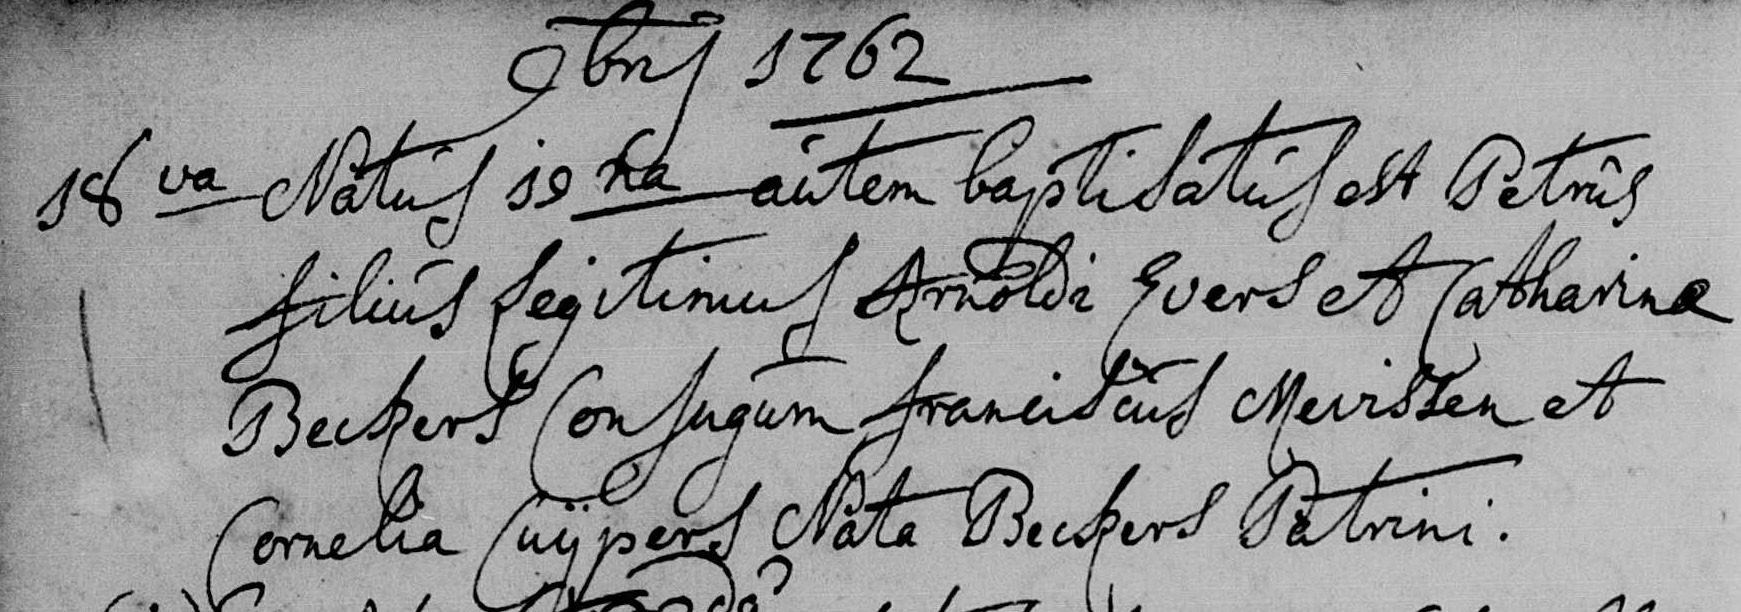 9bris 1762
18va Natus 19na autem baptisatus est Petrus
filius legitimus Arnoldi Evers et Catharina
Beckers Conjugum franciscus Mevissen et
Cornelia Cuÿpers Nata Beckers Patrini.